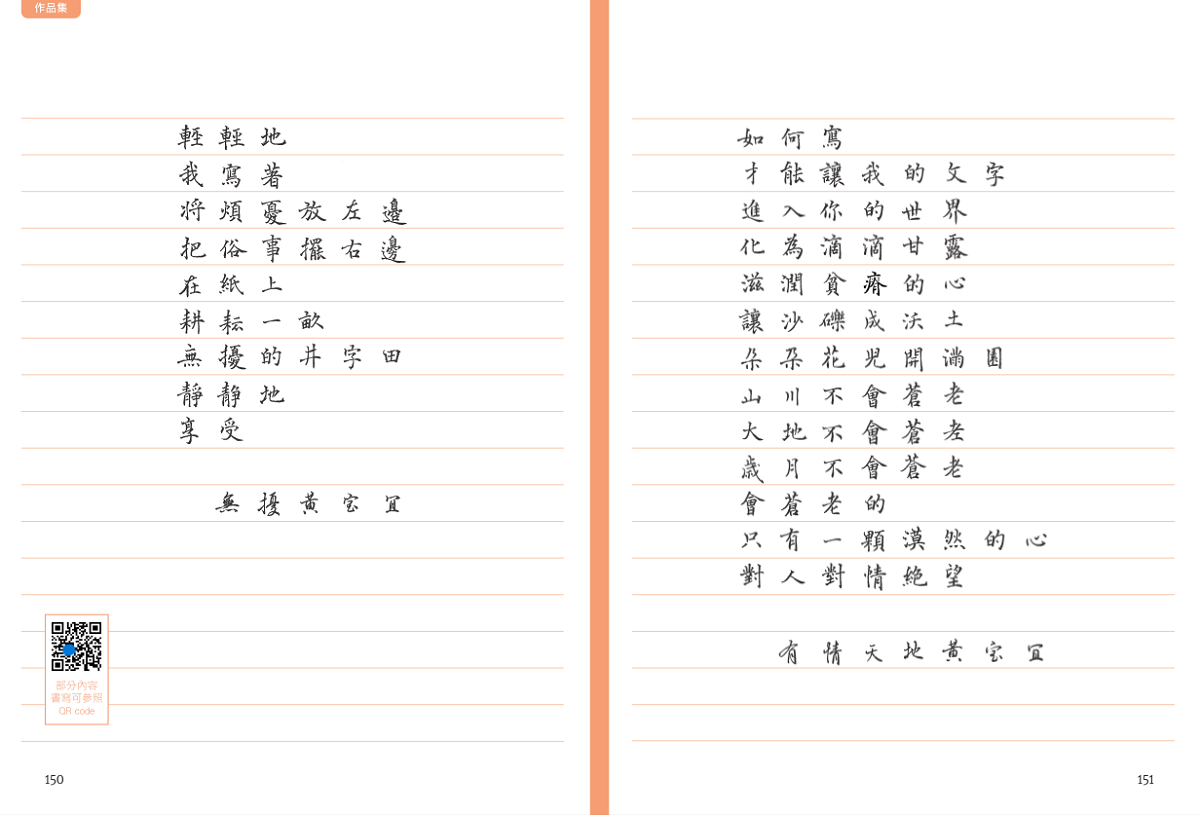 作品集
輕輕地
我寫著
將煩憂放左邊
把俗事擺右邊
在紙上
耕耘一畝
無擾的井字田
靜靜地
享受
無擾黃宝宜
部分內容
書寫可參照
QR code
150
如何寫
才能讓我的文字
進入你的世界
化為滴滴甘露
滋潤貧瘠的心
讓沙礫成沃土
朵朵花兒開滿園
山川不會蒼老
大地不會蒼老
歲月不會蒼老
會蒼老的
只有一顆漠然的心
對人對情絕望
有情天地黃宝宜
151